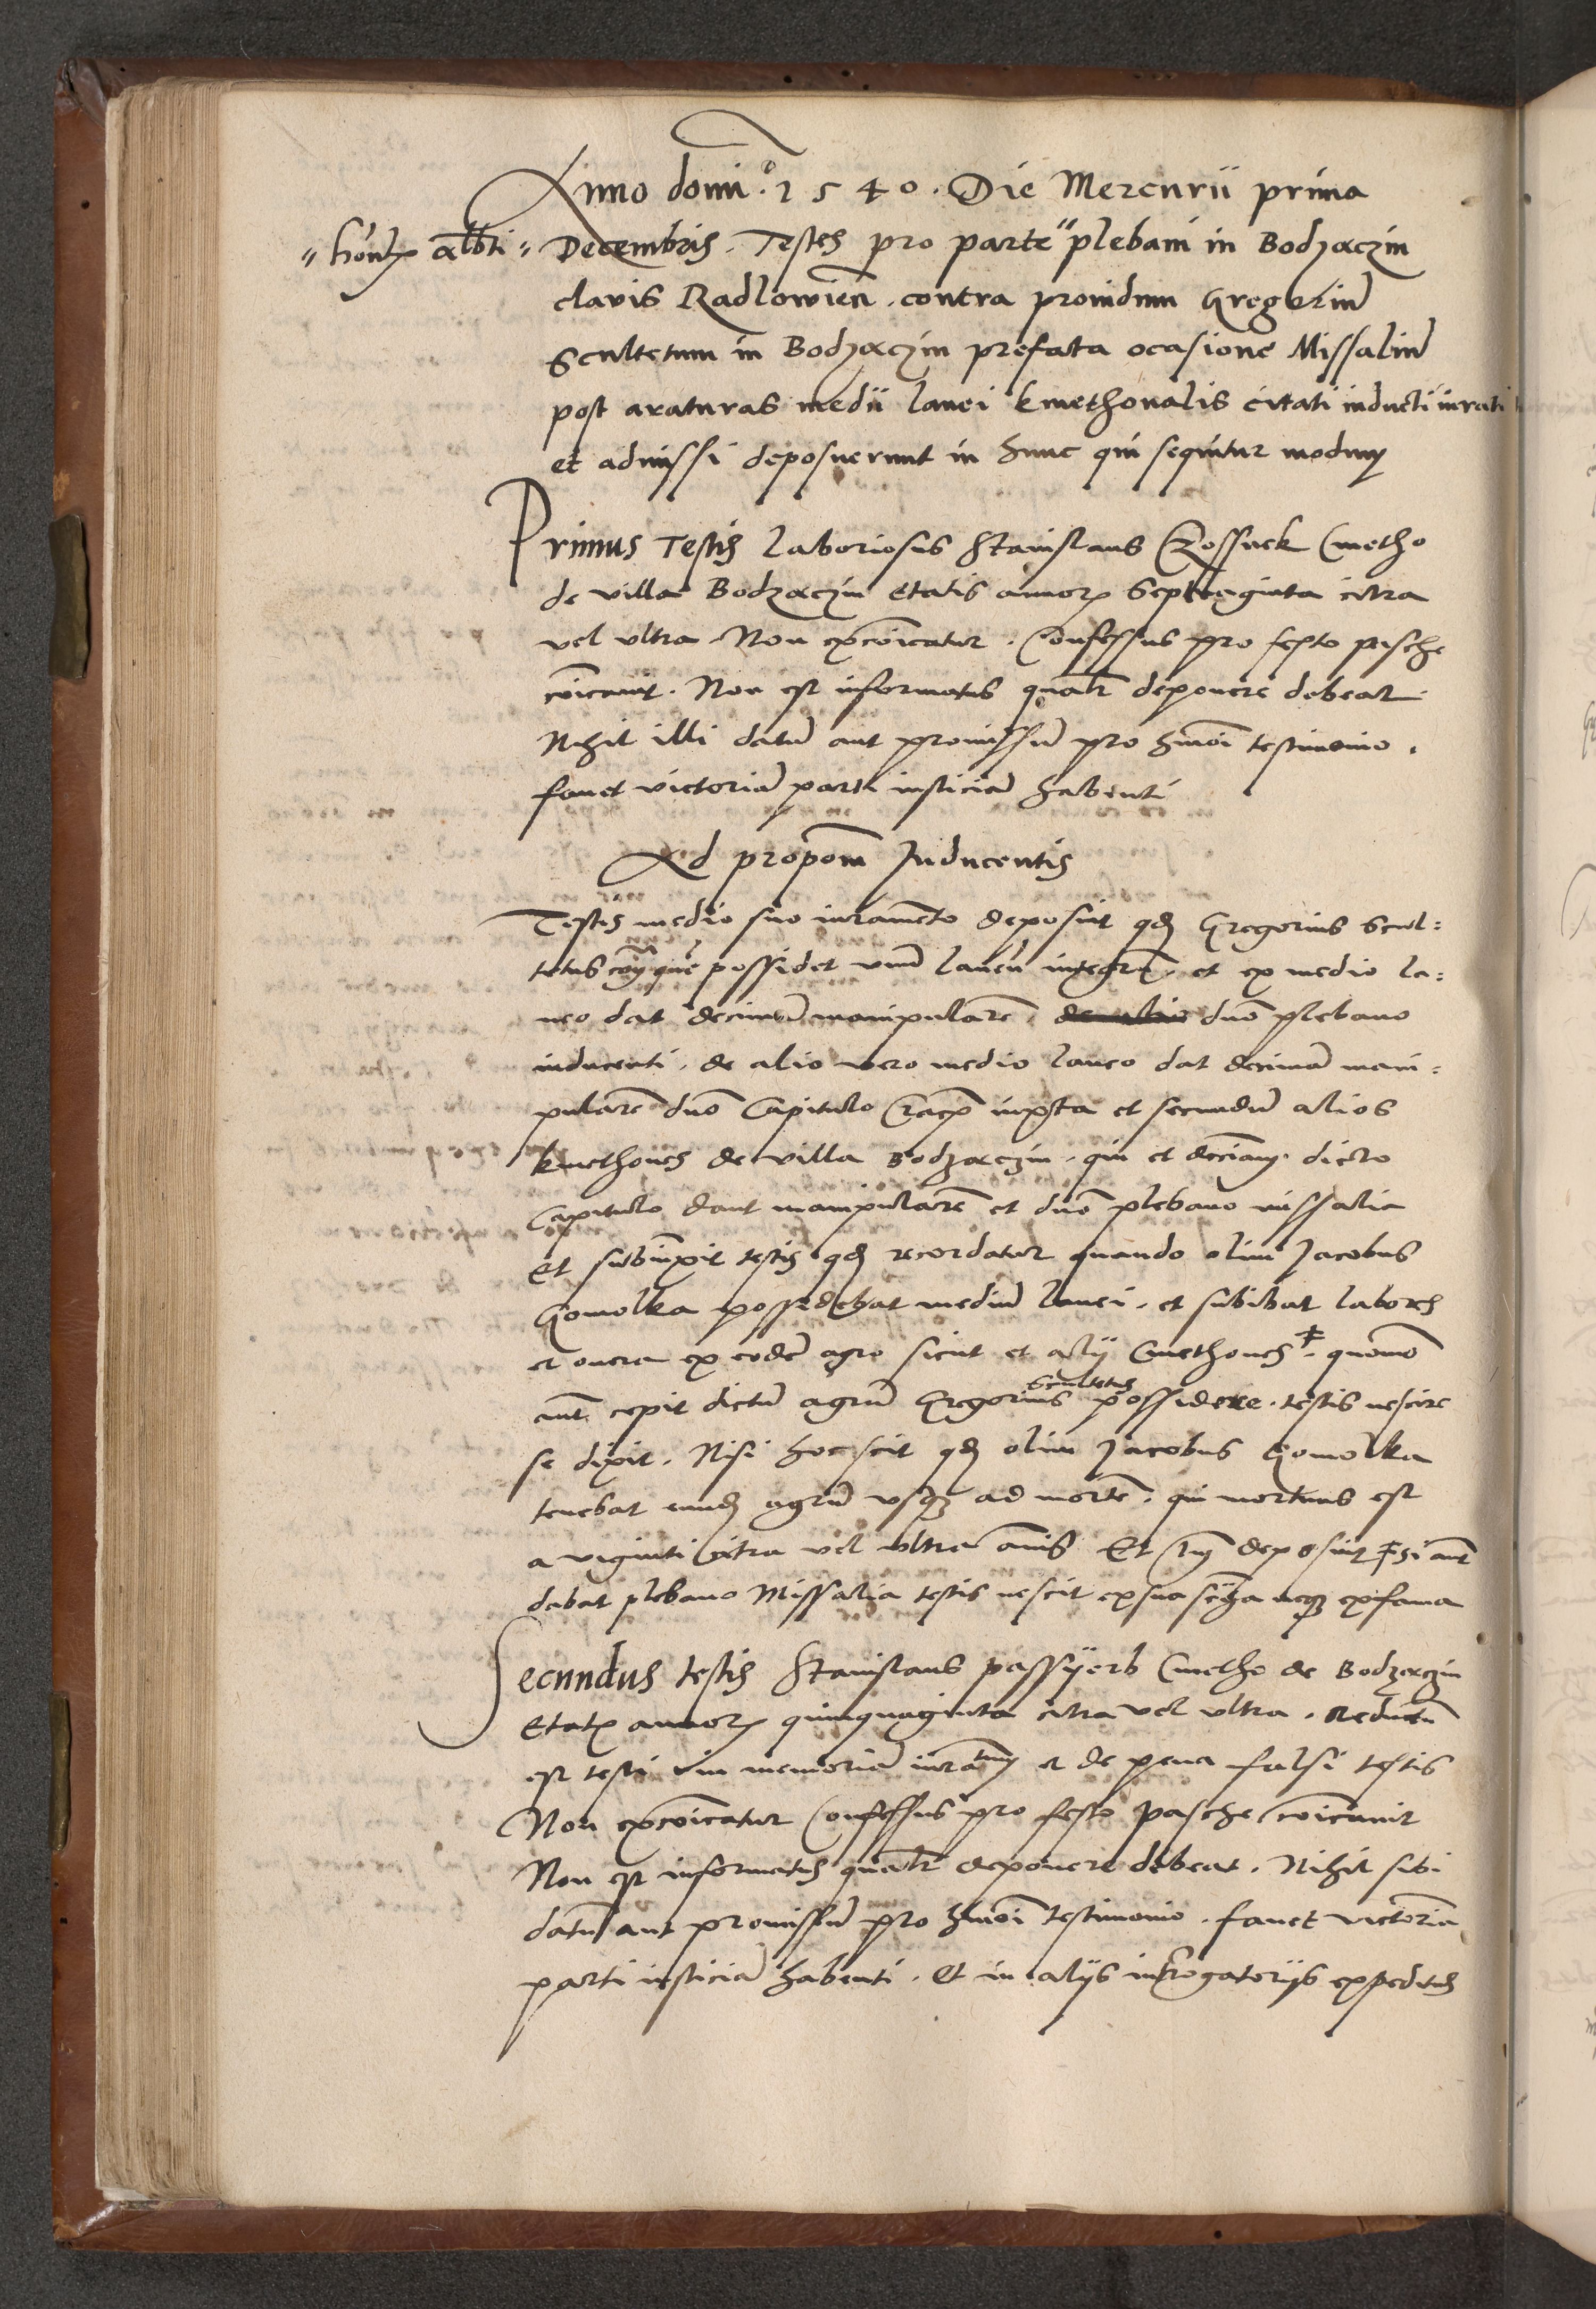 Anno domi. 1540. Die Mercurii prima
"hon. albti" Decembris. Testes pro parte " plebani in Bodzaczin
clavis Radlowien. contra providum Gregoriu
Scultetum in Bodzaczin prefata ocasione Missaliu
post araturas medii lanei kmethonalis citati inducti iurati
et admissi deposuerunt in hunc qui sequitur modum
Primus Testis laboriosus Stanislaus Cmetho
de villa Bodzaczin etatis annor. Septuaginta citra
vel ultra. Non excoicatur. Confessus pro festo pasche
coicavit. Non est informatus qualr deponere debeat.
Nihil illi datu aut promissu pro hmoi testimonio.
favet victoria parti iusticia habenti
Ad propom Inducentis
Testis medio suo iuramento deposuit qd Gregorius Scul=
tetus possidet unu laneu integru. et ex medio la=
neo dat decima manipulare. duo plebano
inducenti. de alio vero medio laneo dat decima mani=
pulare duo Capitulo Crac. iuxta et secundu alios
kmethones de villa Bodzaczin. qui et decimam dicto
Capitulo dant manipulare et duo plebano missalia
Et subiunxit testis qd recordatur quando olim Jacobus
Gomolka possidebat mediu lanei. et subibat labores
et onera ex eode agro sicut et alij Cmethones ‡. quomo
aut. cepit dictu agru Gregorius Scultetus possidere. testis nescire
se dixit. Nisi hoc scit qd olim Jacobus Gomolka
tenebat eund agru usq ad morte. qui mortuus est
a viginti citra vel ultra annis. Et tm deposuit ‡ si aut
dabat plebano Missalia testis nescit ex sua scia neq ex fama
Secundus testis Stanislaus passijerb Cmetho de Bodzaczin
Etatis annor. quinquaginta citra vel ultra. Reductu
est testi in memoria iuratum et de pena falsi testis
Non excoicatur Confessus pro festo pasche coicavit
Non est informatus qualr deponere debeat. Nihil sibi
datu aut promissu pro hmoi testimonio. favet victoria
parti iusticia habenti. Et in alijs introgatorijs expeditus